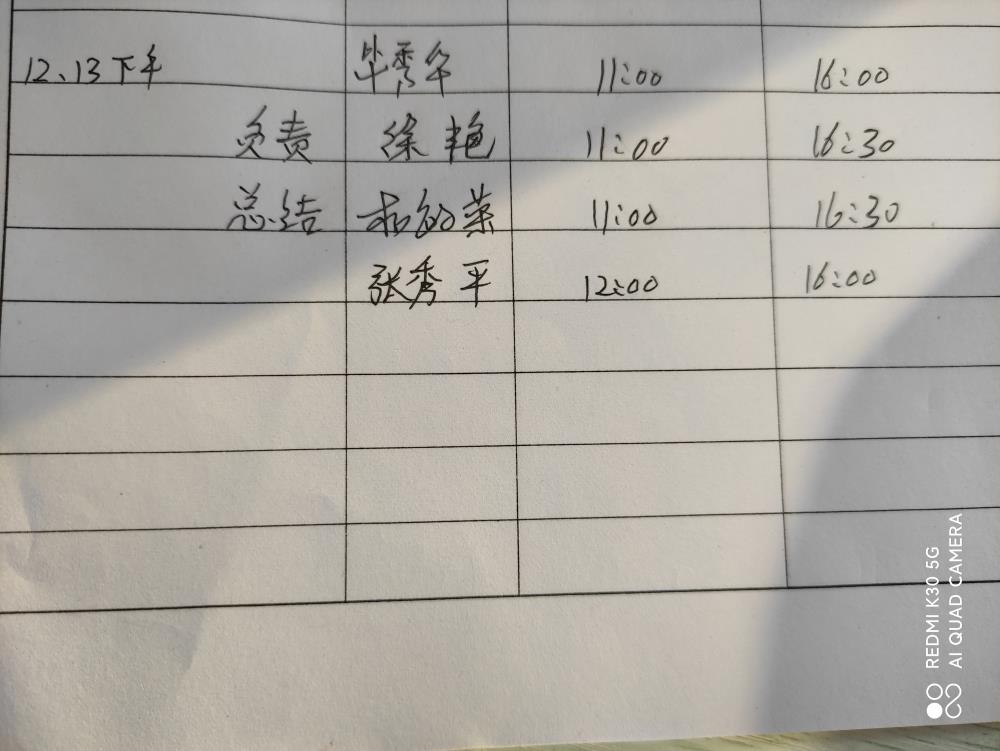 12、13下午 毕秀华 11:00 16:00
负责 徐艳 11:00 16:30
总结 荣 11:00 16:30
张秀平 12:00 16:00
REDMI K30 5G
AI QUAD CAMERA